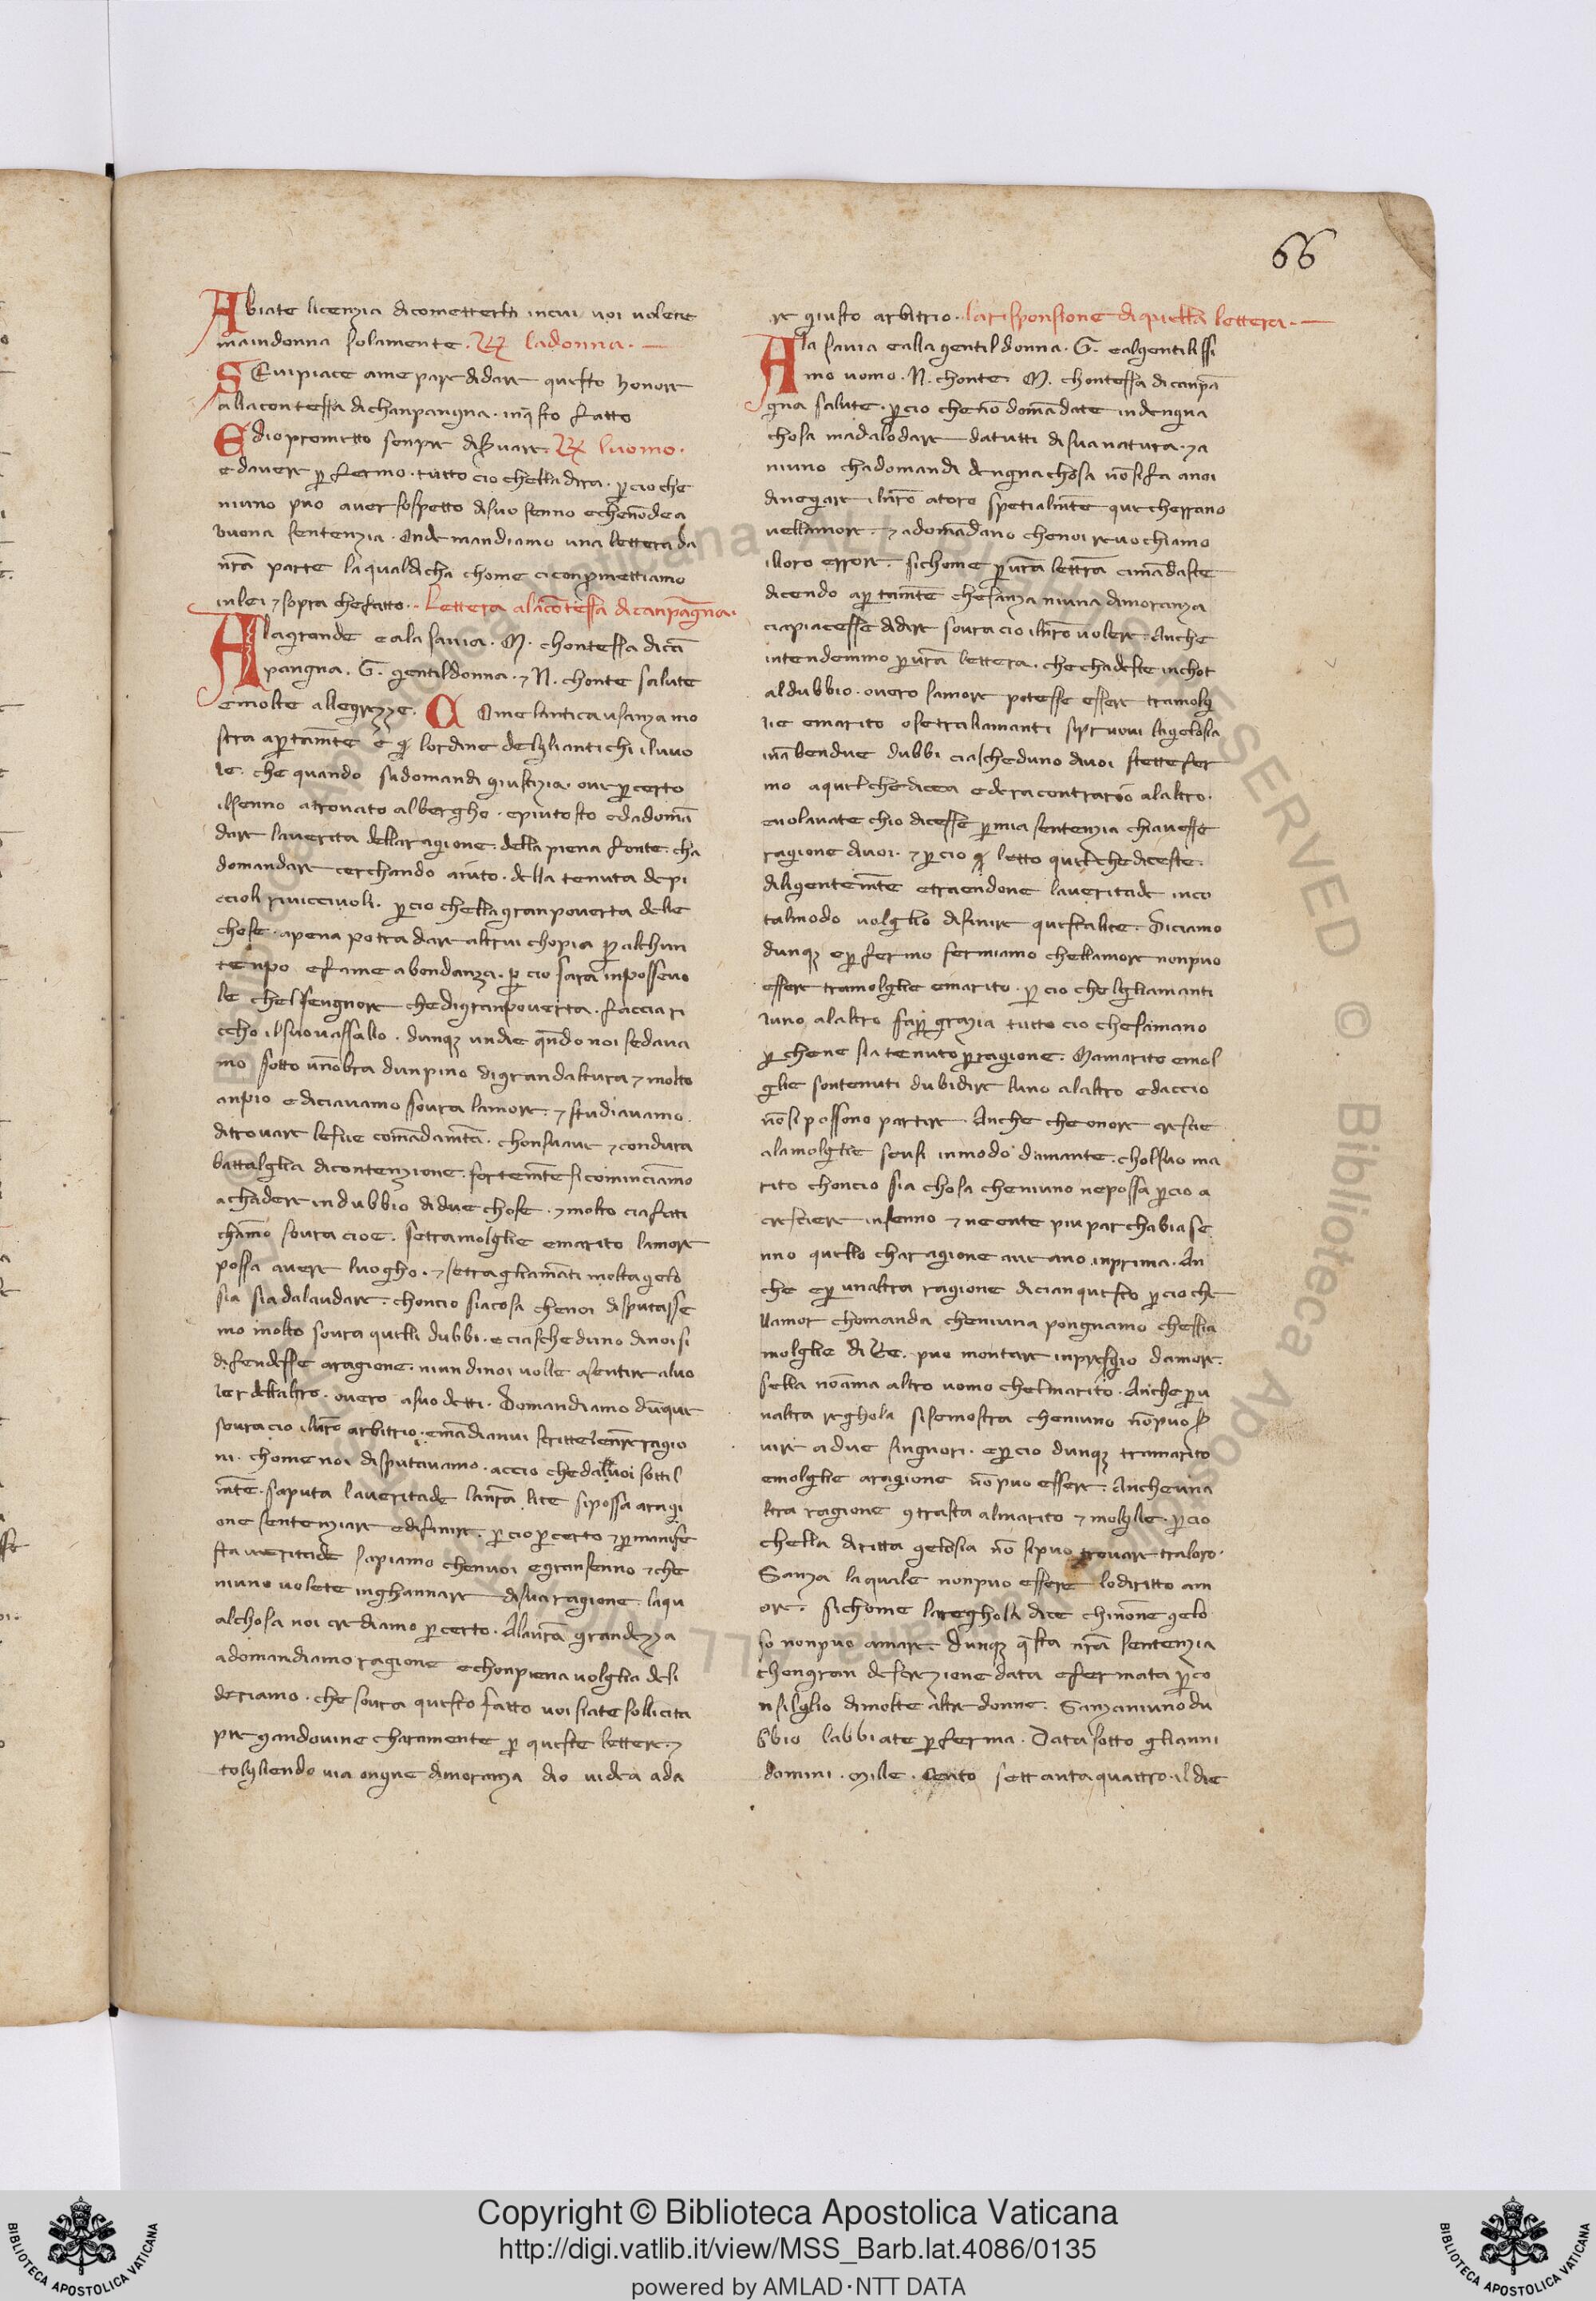 66
Abiate licenzia dicometterla incui uoi uolete
ma in donna solamente. R ladonna.
SEuipiace ame pare didare questo honore
allacontessa dichanpangna. inq̄sto fatto
Edioprometto senpre dis̄uare. R luomo.
edauere p̄ fermo. tutto cio chella dira. p̄ cio che
niuno puo auer sospetto disuo senno echenōdea
buona sentenzia. Onde mandiamo una lettera da
nr̄a parte laqualdicha chome ciconpromettiamo
inlei ⁊ sopra chefatto.. Lettera alacōtessa dicanpāgna.
Alagrande eala sauia. M. chontessa dicā
pangna. G. gentildonna. ⁊ N. chonte salute
emolte allegrezze. COme lantica usanza mo
stra ap̄tamēte
le. che quando sadomandi giustizia. oue p̄ certo
ilsenno atrouato alberghe. epiutosto edadomā
dare lauerita dellaragione. della piena fonte. cha
domandare cerchando aiuto. della tenuta depi
ccioli riuiccivoli. p̄ cio chella granpouerta delle
chose. apena potra dare altrui chopia p̄ alchun
tenpo efame abondanza. p̄ cio sara inposseuo
le chelsengnore chedigranpouerta. facciari
ccho ilsuouassallo. dunqz undie qn̄do noi sedaua
mo sotto un̄obra dunpino digrandaltura ⁊ molto
anpio ediciauamo soura lamore. ⁊ studiauamo.
ditrouare lesue comādamēta. chonsuaue ⁊ condura
battalglia dicontenzione. fortemēte sicominciāmo
achadere indubbio didue chose. ⁊ molto ciafati
chāmo soura cioe. setramolglie emarito lamore
possa auere luogho. ⁊ setragliamāti molta gelo
sia sia dalaudare. choncio siacosa chenoi disputasse
mo molto soura quelli dubbi. e ciascheduno dinoisi
difendesse aragione. niun dinoi uolle asentire aluo
ler dellaltro. ouero asuo detti. Domandiamo dūque
souracio iluro arbitrio. emādianui scritte lenr̄e ragio
ni. chome noi disputauamo. accio cheda uoi sottil
mēte. saputa laueritade lanr̄a lite sipossa aragi
one sentenziare edifinire. p̄ cio p̄ certo ⁊ p̄ manife
sta ueritade sapiamo chenuoi egransenno ⁊ che
niuno uolete inghannare disuaragione. laqu
alchosa noi crediamo p̄ certo. Alaur̄a grandezza
adomandiamo ragione echonpiena uolglia desi
deriamo. che soura questo fatto uoi siate sollicita
pregandouine charamente p̄ queste lettere. ⁊
tolgliendo uia ongne dimoranza dio uidea ada
re giusto arbitrio. larisponsione diquella lettera.
Ala sauia ealla gentil donna. G. ealgentilissi
mo uomo. N. chonte. M. chontessa dicanpā
gna salute. p̄ cio chenō domādate indengna
chosa madalodare datutti disuanatura. ⁊ a
niuno chadomandi dengnachosa nōsifa anoi
dinegare ilnr̄o atoro spetialmēte que cherrano
nellamore. ⁊ adomādano chenoi reuochiamo
illoro errore. sichome p̄ ur̄a lettera cimādaste
dicendo ap̄tamēte chesanza niuna dimoranza
ciapiacesse didire soura cio ilnr̄o uolere. Anche
intendemmo p̄ ur̄a lettera. che chadeste inchot
aldubbio. ouero samore potesse essere tramolg
lie emarito osetraliamanti sipruoui lagelosia
inābendue dubbi ciascheduno diuoi stettefer
mo aquelchedicea ederacontrario alaltro.
euolauate chio dicesse p̄ mia sentenzia chiauesse
ragione diuoi. ⁊ p̄ cio letto quelchediceste.
diligentemēte etraendone laueritade inco
talmodo uolglio difinire questalite. Diciamo
dunqz ep̄ fermo fermiamo chellamore nonpuo
essere tramolglie emarito. p̄ cio chelgliamanti
luno alaltro fap̄ grazia tutto cio chesamano
p̄ chene sia tenuto p̄ ragione. Mamarito emol
glie sontenuti dubidire luno alaltro edaccio
nōsi possono partire. Anche che onore cresce
alamolglie seusi inmodo damante. cholsuo ma
rito choncio sia chosa cheniuno nepossa p̄ cio a
cresciere insenno ⁊ neente piu par chabia se
nno quello charagione aueano inprima. An
che ep̄ unaltra ragione dicianquesto p̄ cio che
llamor chomanda cheniuna pongnamo chessia
molglie di re. puo montare inpresgio damore.
sella nōama altro uomo chelmarito. Anche p̄ u
naltra reghola sisemostra cheniuno nōpuo s̄
uire adue singnori. ep̄ cio dunqz tramarito
emolglie aragione nōpuo essere. Ancheuna
ltra ragione ꝯtrasta almarito ⁊ molglie. p̄ cio
chella diritta gelosia nō sipuo trouare traloro.
Sanza laquale nonpuo essere lodiritto am
ore. sichome lareghola dice chinōne gelo
so nonpuo amare. Dunqz q̄sta nr̄a sentenzia
chongran descrezione data efermata p̄ co
nsilglio dimolte altre donne. Sanzaniuno du
bbio labbiate p̄ ferma. Data sotto glianni
domini. Mille. Cento settantaquattro. il die
Copyright © Biblioteca Apostolica Vaticana
http://digi.vatlib.it/view/MSS_Barb.lat.4086/0135
powered by AMLAD·NTT DATA